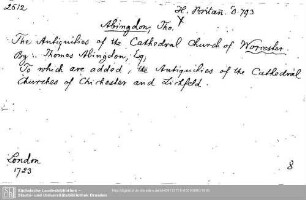 2512
H. Britan. B. 793
Abingdon, Tho.
The Antiquities of the Cathedral Church of Worcester.
By: Thomas Abingdon, Esq.
To which are added, the Antiquities of the Cathedral
Churches of Chichester and Lichfield.
London
1723
8